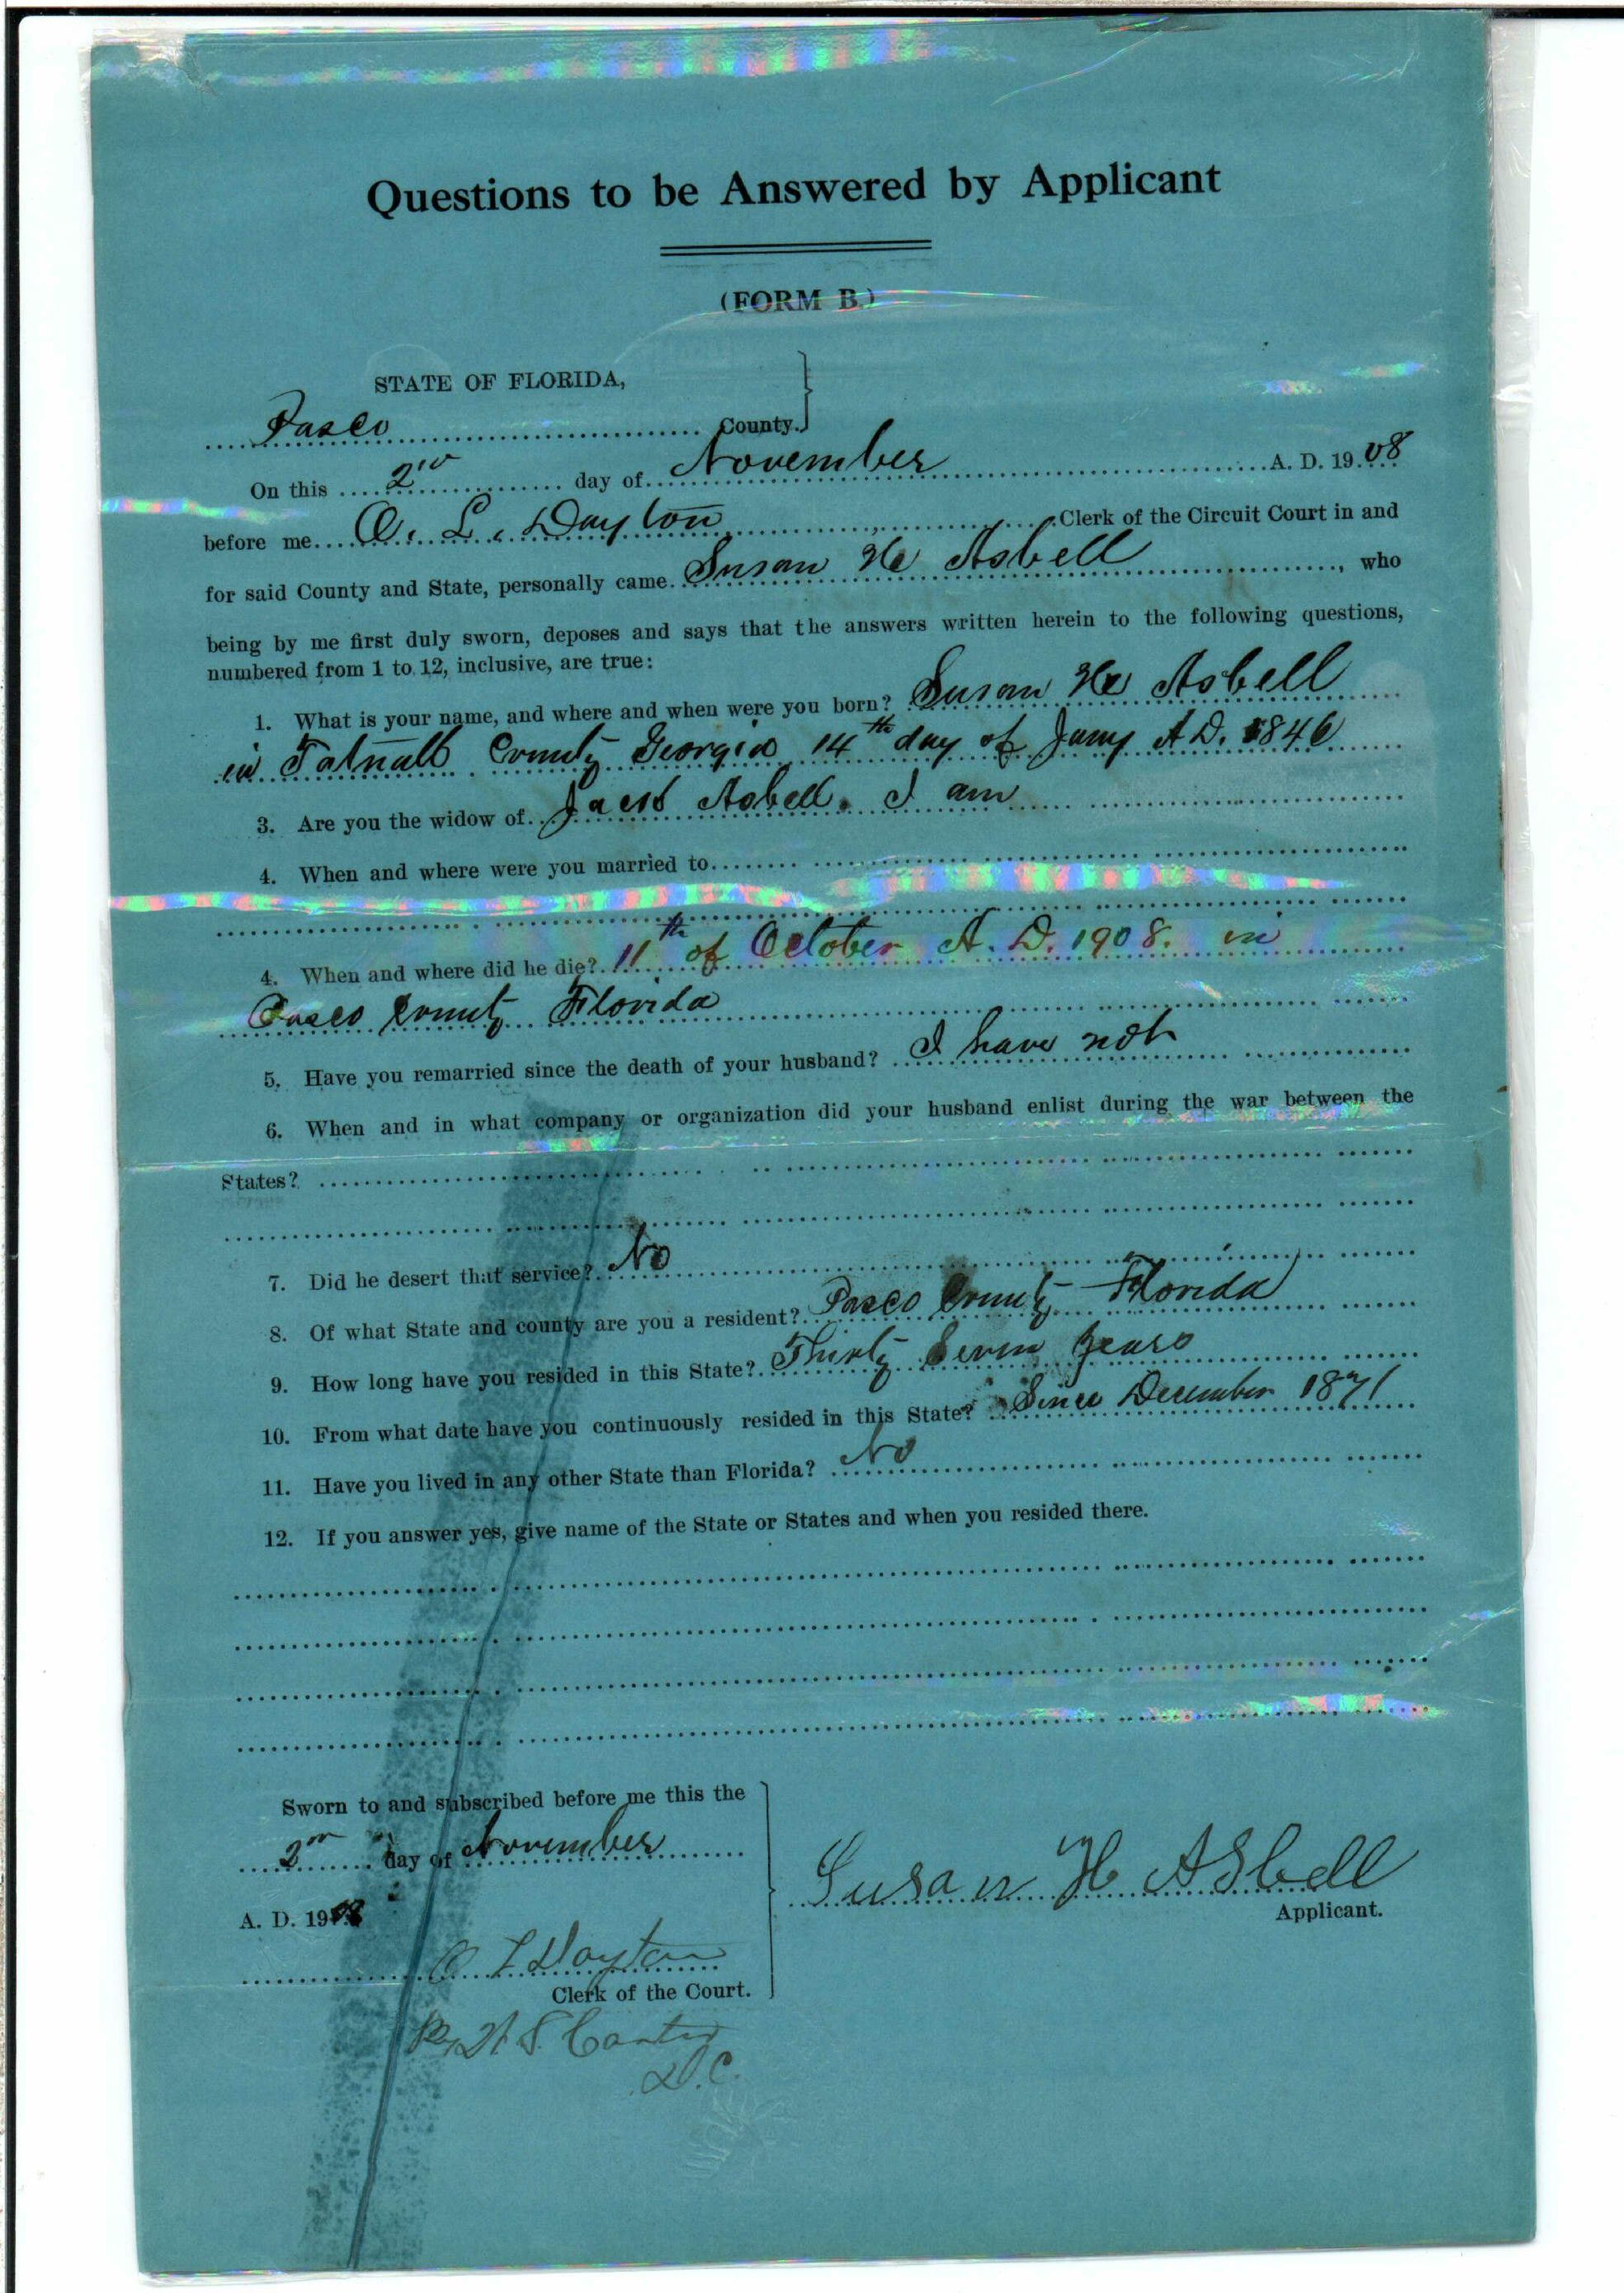 Questions to be Answered by Applicant
(FORM B.)
STATE OF FLORIDA,
Pasco County.
On this 2nd day of November A. D. 1908
before me O. L. Dayton Clerk of the Circuit Court in and
for said County and State, personally came Susan H Asbell, who
being by me first duly sworn, deposes and says that the answers written herein to the following questions,
numbered from 1 to 12, inclusive, are true:
1. What is your name, and where and when were you born? Susan H Asbell
in Tatnall County Georgia 14th day of Jany A.D. 1846
3. Are you the widow of Jacob Asbell. I am
4. When and where were you married to
4. When and where did he die? 11th of October A. D. 1908. in
Pasco County Florida
5. Have you remarried since the death of your husband? I have not
6. When and in what company or organization did your husband enlist during the war between the
States?
7. Did he desert that service? No
8. Of what State and county are you a resident? Pasco County Florida
9. How long have you resided in this State? Thirty Seven Years
10. From what date have you continuously resided in this State? Since December 1871
11. Have you lived in any other State than Florida? No
12. If you answer yes, give name of the State or States and when you resided there.
Sworn to and subscribed before me this the
2nd day of November
A. D. 1908
Susan H Asbell
Applicant.
O L Dayton
Clerk of the Court.
By H S. Carter
D.C.